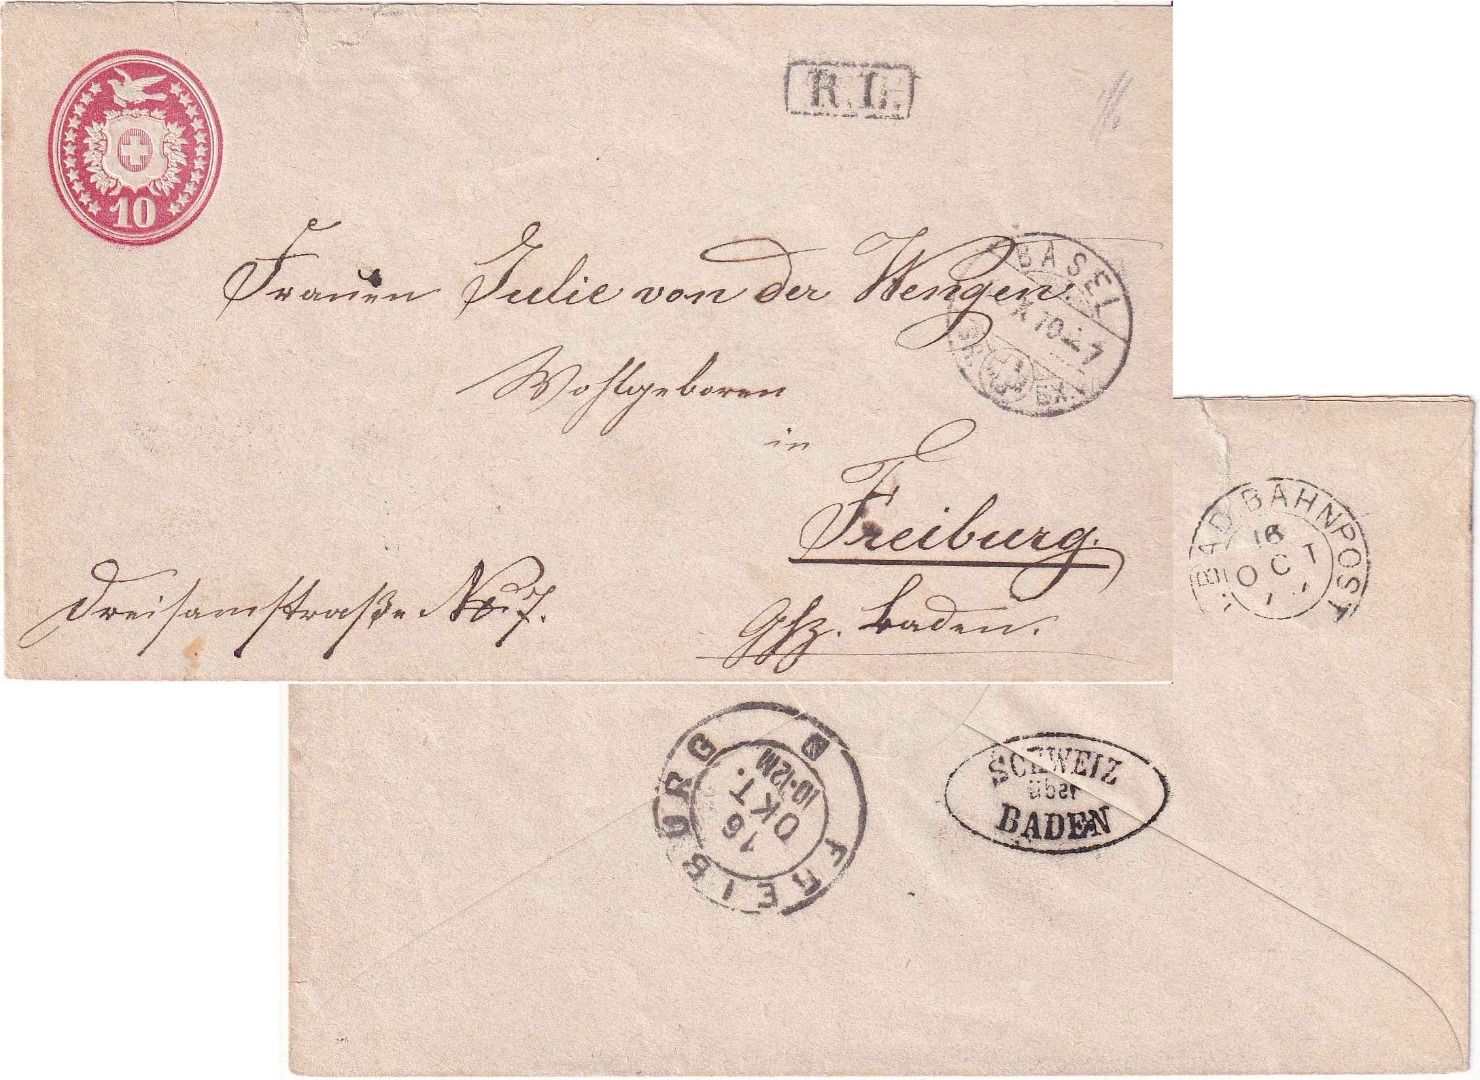 10
R.L.
BASEL
X 70 7
BR. EX.
Frauen Julie von der Wengen
Wohlgeboren
in
Freiburg.
Ghz. Baden.
Dreisamstraße No 7.
BAD. BAHNPOST
16
OCT
FREIBURG
16
OKT.
10-12M
SCHWEIZ
über
BADEN